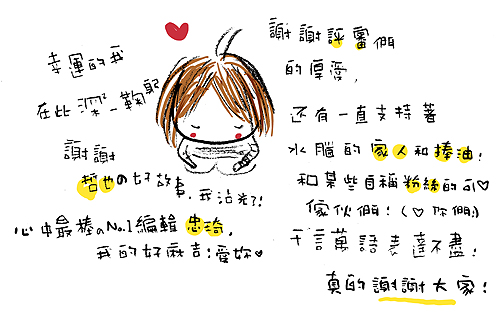 幸運的我
在此深深一鞠躬
謝謝
哲也の好故事,我沾光了!
心中最棒のNo.1編輯忠琦,
我的好麻吉!愛妳♥
謝謝評審們
的厚愛,
還有一直支持著
水腦的家人和捧油!
和某些自稱粉絲的可♥
傢伙們!(♥你們!)
千言萬語表達不盡!
真的謝謝大家!